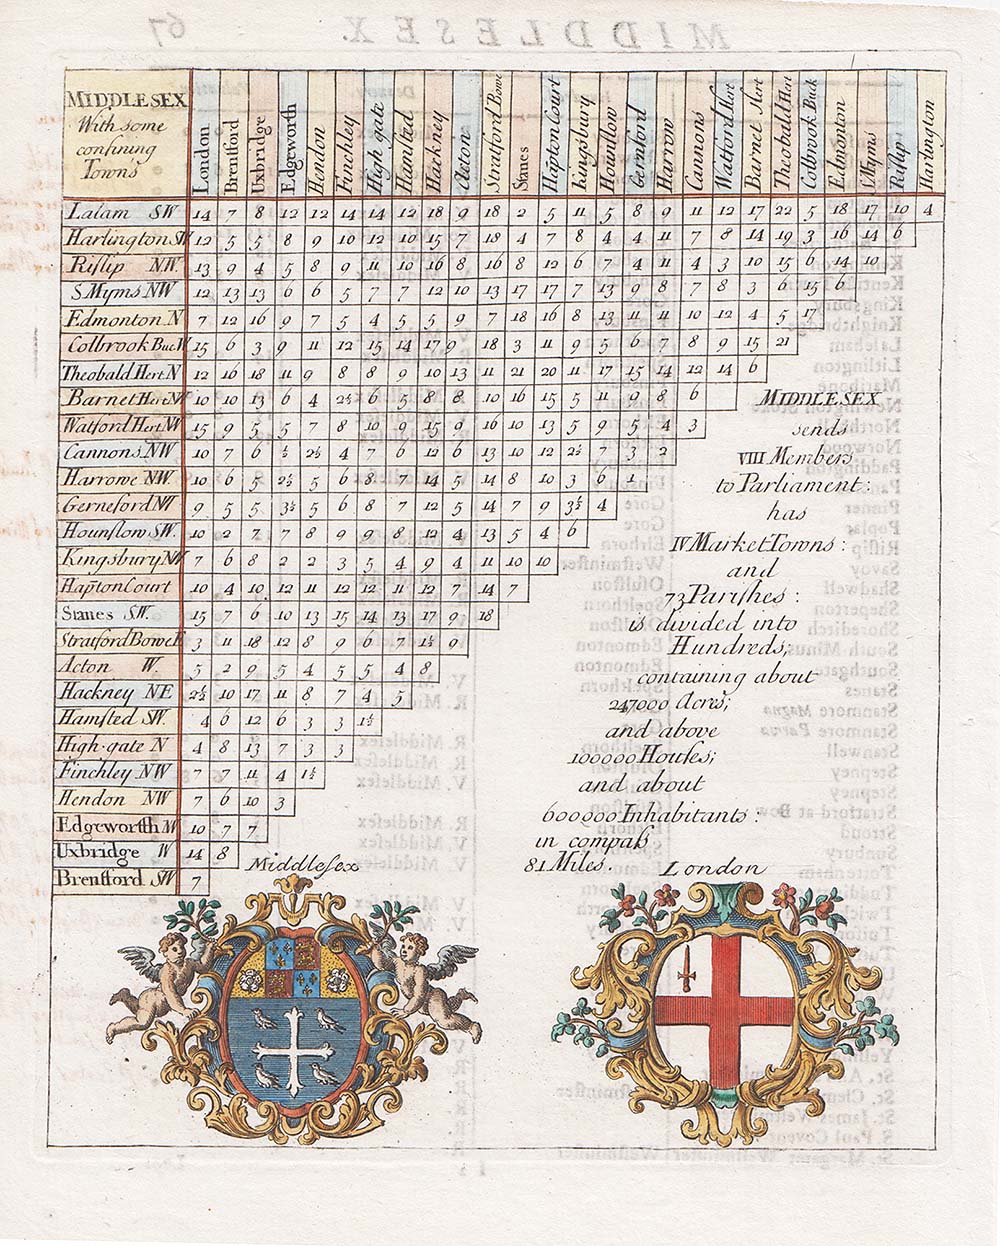 MIDDLESEX
With some
confining
Towns
London Brentford Uxbridge Edgeworth Hendon Finchley High gate Hamsted Hackney Acton Stratford Bowe Stanes Haptoncourt Kingsbury Hounslow Gernford Harrow Cannons Watford Hert Barnet Hert Theobald Hert Colbrook Buck Edmonton S. Myms Rislip Harlington
Lalam SW 14 7 8 12 12 14 14 12 18 9 18 2 5 11 5 8 9 11 12 17 22 5 18 17 10 4
Harlington SW 12 5 5 8 9 10 12 10 15 7 18 4 7 8 4 4 11 7 8 14 19 3 16 14 6
Rislip NW. 13 9 4 5 8 9 11 10 16 8 16 8 12 6 7 4 11 4 3 10 15 6 14 10
S Myms NW 12 13 13 6 6 5 7 7 12 10 13 17 17 7 13 9 8 7 8 3 6 15 6
Edmonton N 7 12 16 9 7 5 4 5 5 9 7 18 16 8 13 11 11 10 12 4 5 17
Colbrook Buc W 15 6 3 9 11 12 15 14 17 9 18 3 11 9 5 6 7 8 9 15 21
Theobald Hert N 12 16 18 11 9 8 8 9 10 13 11 21 20 11 17 15 14 12 14 6
Barnet Hert N 10 10 13 6 4 2½ 6 5 8 8 10 16 15 5 11 9 8 6
Watford Hert NW 15 9 5 5 7 8 10 9 15 9 16 10 13 5 9 5 4 3
Cannons NW 10 7 6 ½ 2½ 4 7 6 12 6 13 10 12 2½ 7 3 2
Harrowe NW. 10 6 5 2½ 5 6 8 7 14 5 14 8 10 3 6 1
Gerneford NW 9 5 5 3½ 5 6 8 7 12 5 14 7 9 3½ 4
Hounslow SW. 10 2 7 7 8 9 9 8 12 4 13 5 4 6
Kingsbury NW 7 6 8 2 2 3 5 4 9 4 11 10 10
Hapton Court 10 4 10 12 11 12 12 11 12 7 14 7
Stanes SW. 15 7 6 10 13 15 14 13 17 9 18
Stratford Bowe E 3 11 18 12 8 9 6 7 1½ 9
Acton W. 5 2 9 5 4 5 5 4 8
Hackney NE 2½ 10 17 11 8 7 4 5
Hamsted SW. 4 6 12 6 3 3 1½
High-gate N 4 8 13 7 3 3
Finchley NW 7 7 11 4 1½
Hendon NW 7 6 10 3
Edgeworth W 10 7 7
Uxbridge W 14 8
Brentford SW 7
MIDDLESEX
sends
VIII Members
to Parliament:
has
IV Market Towns:
and
73 Parishes:
is divided into
Hundreds;
containing about
247000 Acres;
and above
100000 Houses;
and about
600000 Inhabitants:
in compass
81 Miles.
Middlesex
London